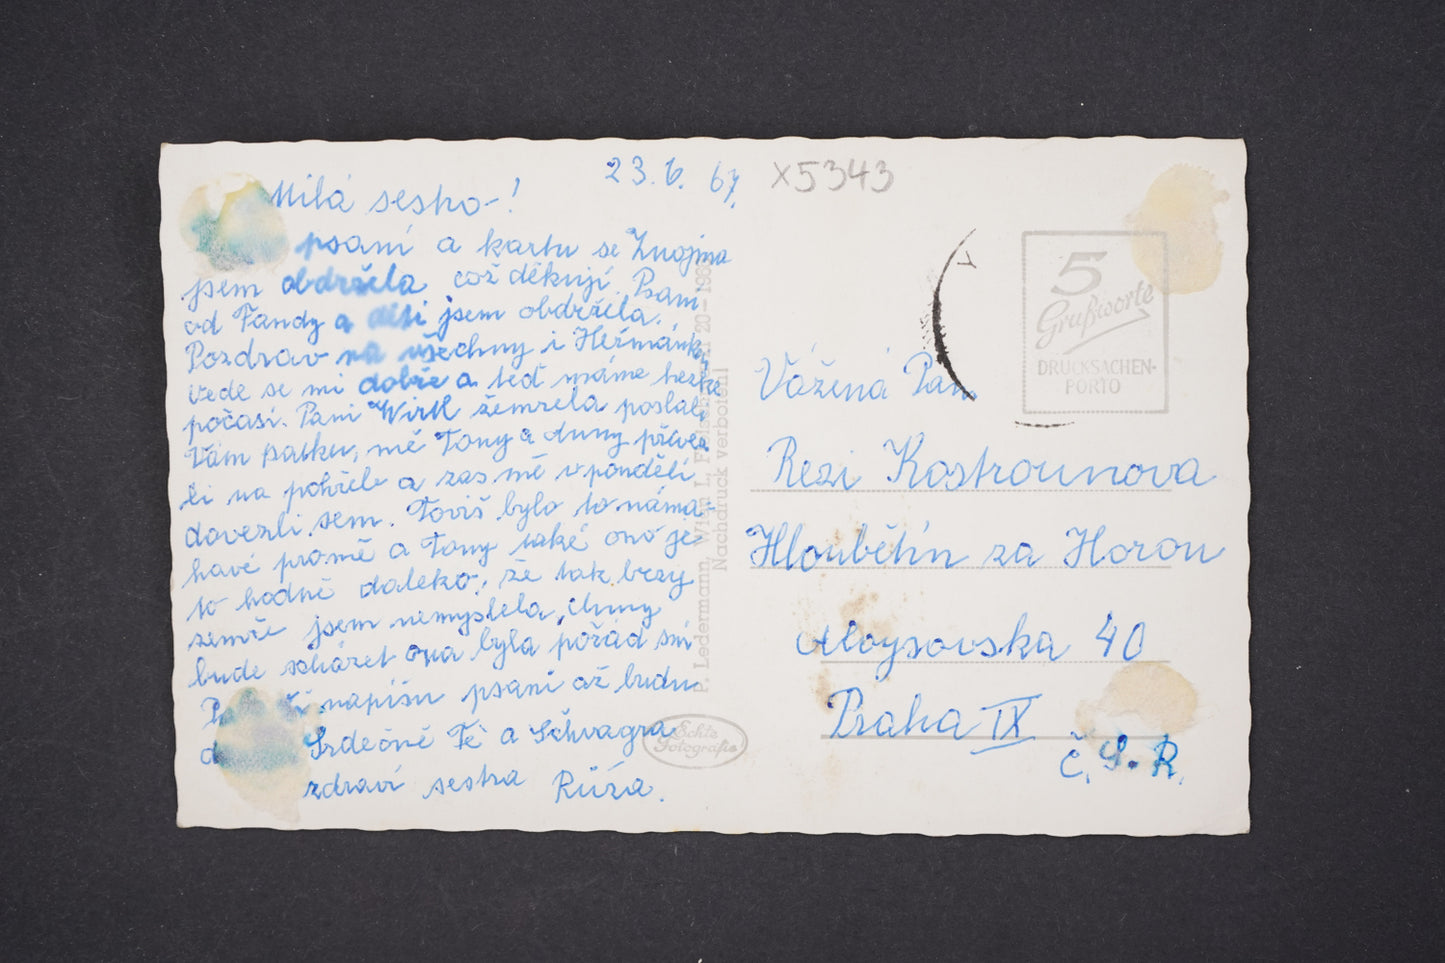 23. 6. 67.
X5343
Milá sestro!
psaní a kartu se Znojma
jsem obdržela což děkuji. Psaní
od Fandy a děti jsem obdržela.
Pozdrav na všechny i Heřmánky
vede se mi dobře a teď máme hezké
počasí. Paní Wirth žemřela poslali
Vám parku, mě Tony a
li na pohřeb a zas mě v pondělí
dovezli sem. Toviš bylo to náma-
havé promě a Tony také ono je
to hodně daleko, že tak brzy
zemře jsem nemyslela,
bude scházet ona byla pořád smí
napíšu psaní až budu
Srdečně Tě a Schvagra
zdraví sestra Růža.
P. Ledermann, Wien I,
Nachdruck verboten!
Echte
Fotografie
5
Grußworte
DRUCKSACHEN-
PORTO
Vážená Paní
Rezi Kostrounova
Hloubětín za Horou
Aloysovska 40
Praha IX
Č. S. R.